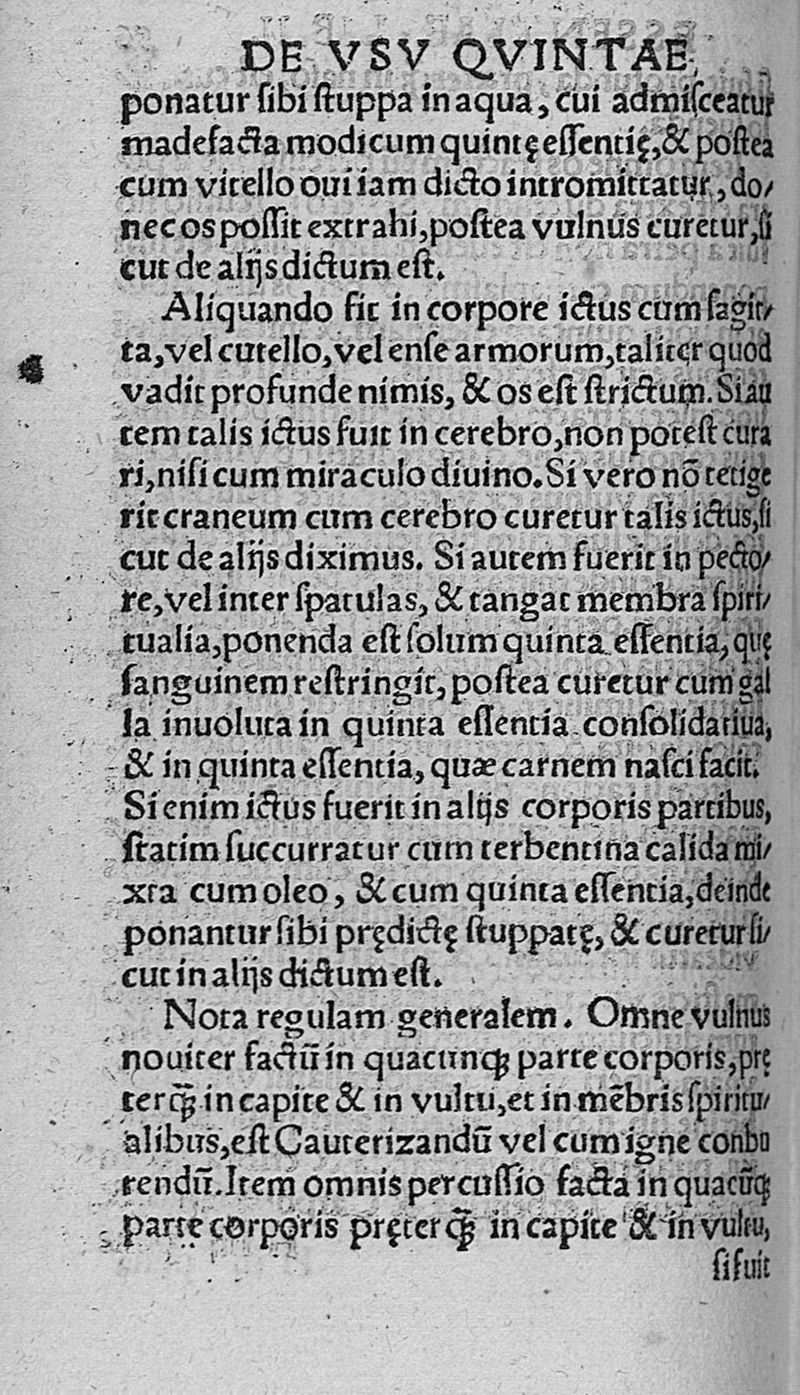 DE VSV QVINTAE
ponatur ſibi ſtuppa in aqua, cui admiſceatur
madefacta modicum quintę eſſentię, & poſtea
cum vitello oui iam dicto intromittatur, do/
nec os poſſit extrahi, poſtea vulnus curetur, ſi
cut de alijs dictum eſt.
Aliquando fit in corpore ictus cum ſagit/
ta, vel cutello, vel enſe armorum, taliter quod
vadit profunde nimis, & os eſt ſtrictum. Si au
tem talis ictus fuit in cerebro, non poteſt cura
ri, niſi cum miraculo diuino. Si vero nō tetige
rit craneum cum cerebro curetur talis ictus, ſi
cut de alijs diximus. Si autem fuerit in pecto/
re, vel inter ſpatulas, & tangat membra ſpiri/
tualia, ponenda eſt ſolum quinta eſſentia, quę
ſanguinem reſtringit, poſtea curetur cum gal
la inuoluta in quinta eſſentia conſolidatiua,
& in quinta eſſentia, quæ carnem naſci facit.
Si enim ictus fuerit in alijs corporis partibus,
ſtatim ſuccurratur cum terbentina calida mi/
xta cum oleo, & cum quinta eſſentia, deinde
ponantur ſibi prędictę ſtuppatę, & curetur ſi/
cut in alijs dictum eſt.
Nota regulam generalem. Omne vulnus
nouiter factū in quacunqꝫ parte corporis, prę
terq̄ꝫ in capite & in vultu, et in mēbris ſpiritu/
alibus, eſt Cauterizandū vel cum igne conbu
rendū. Item omnis percuſſio facta in quacūqꝫ
parte corporis pręterq̄ꝫ in capite & in vultu,
ſi fuit